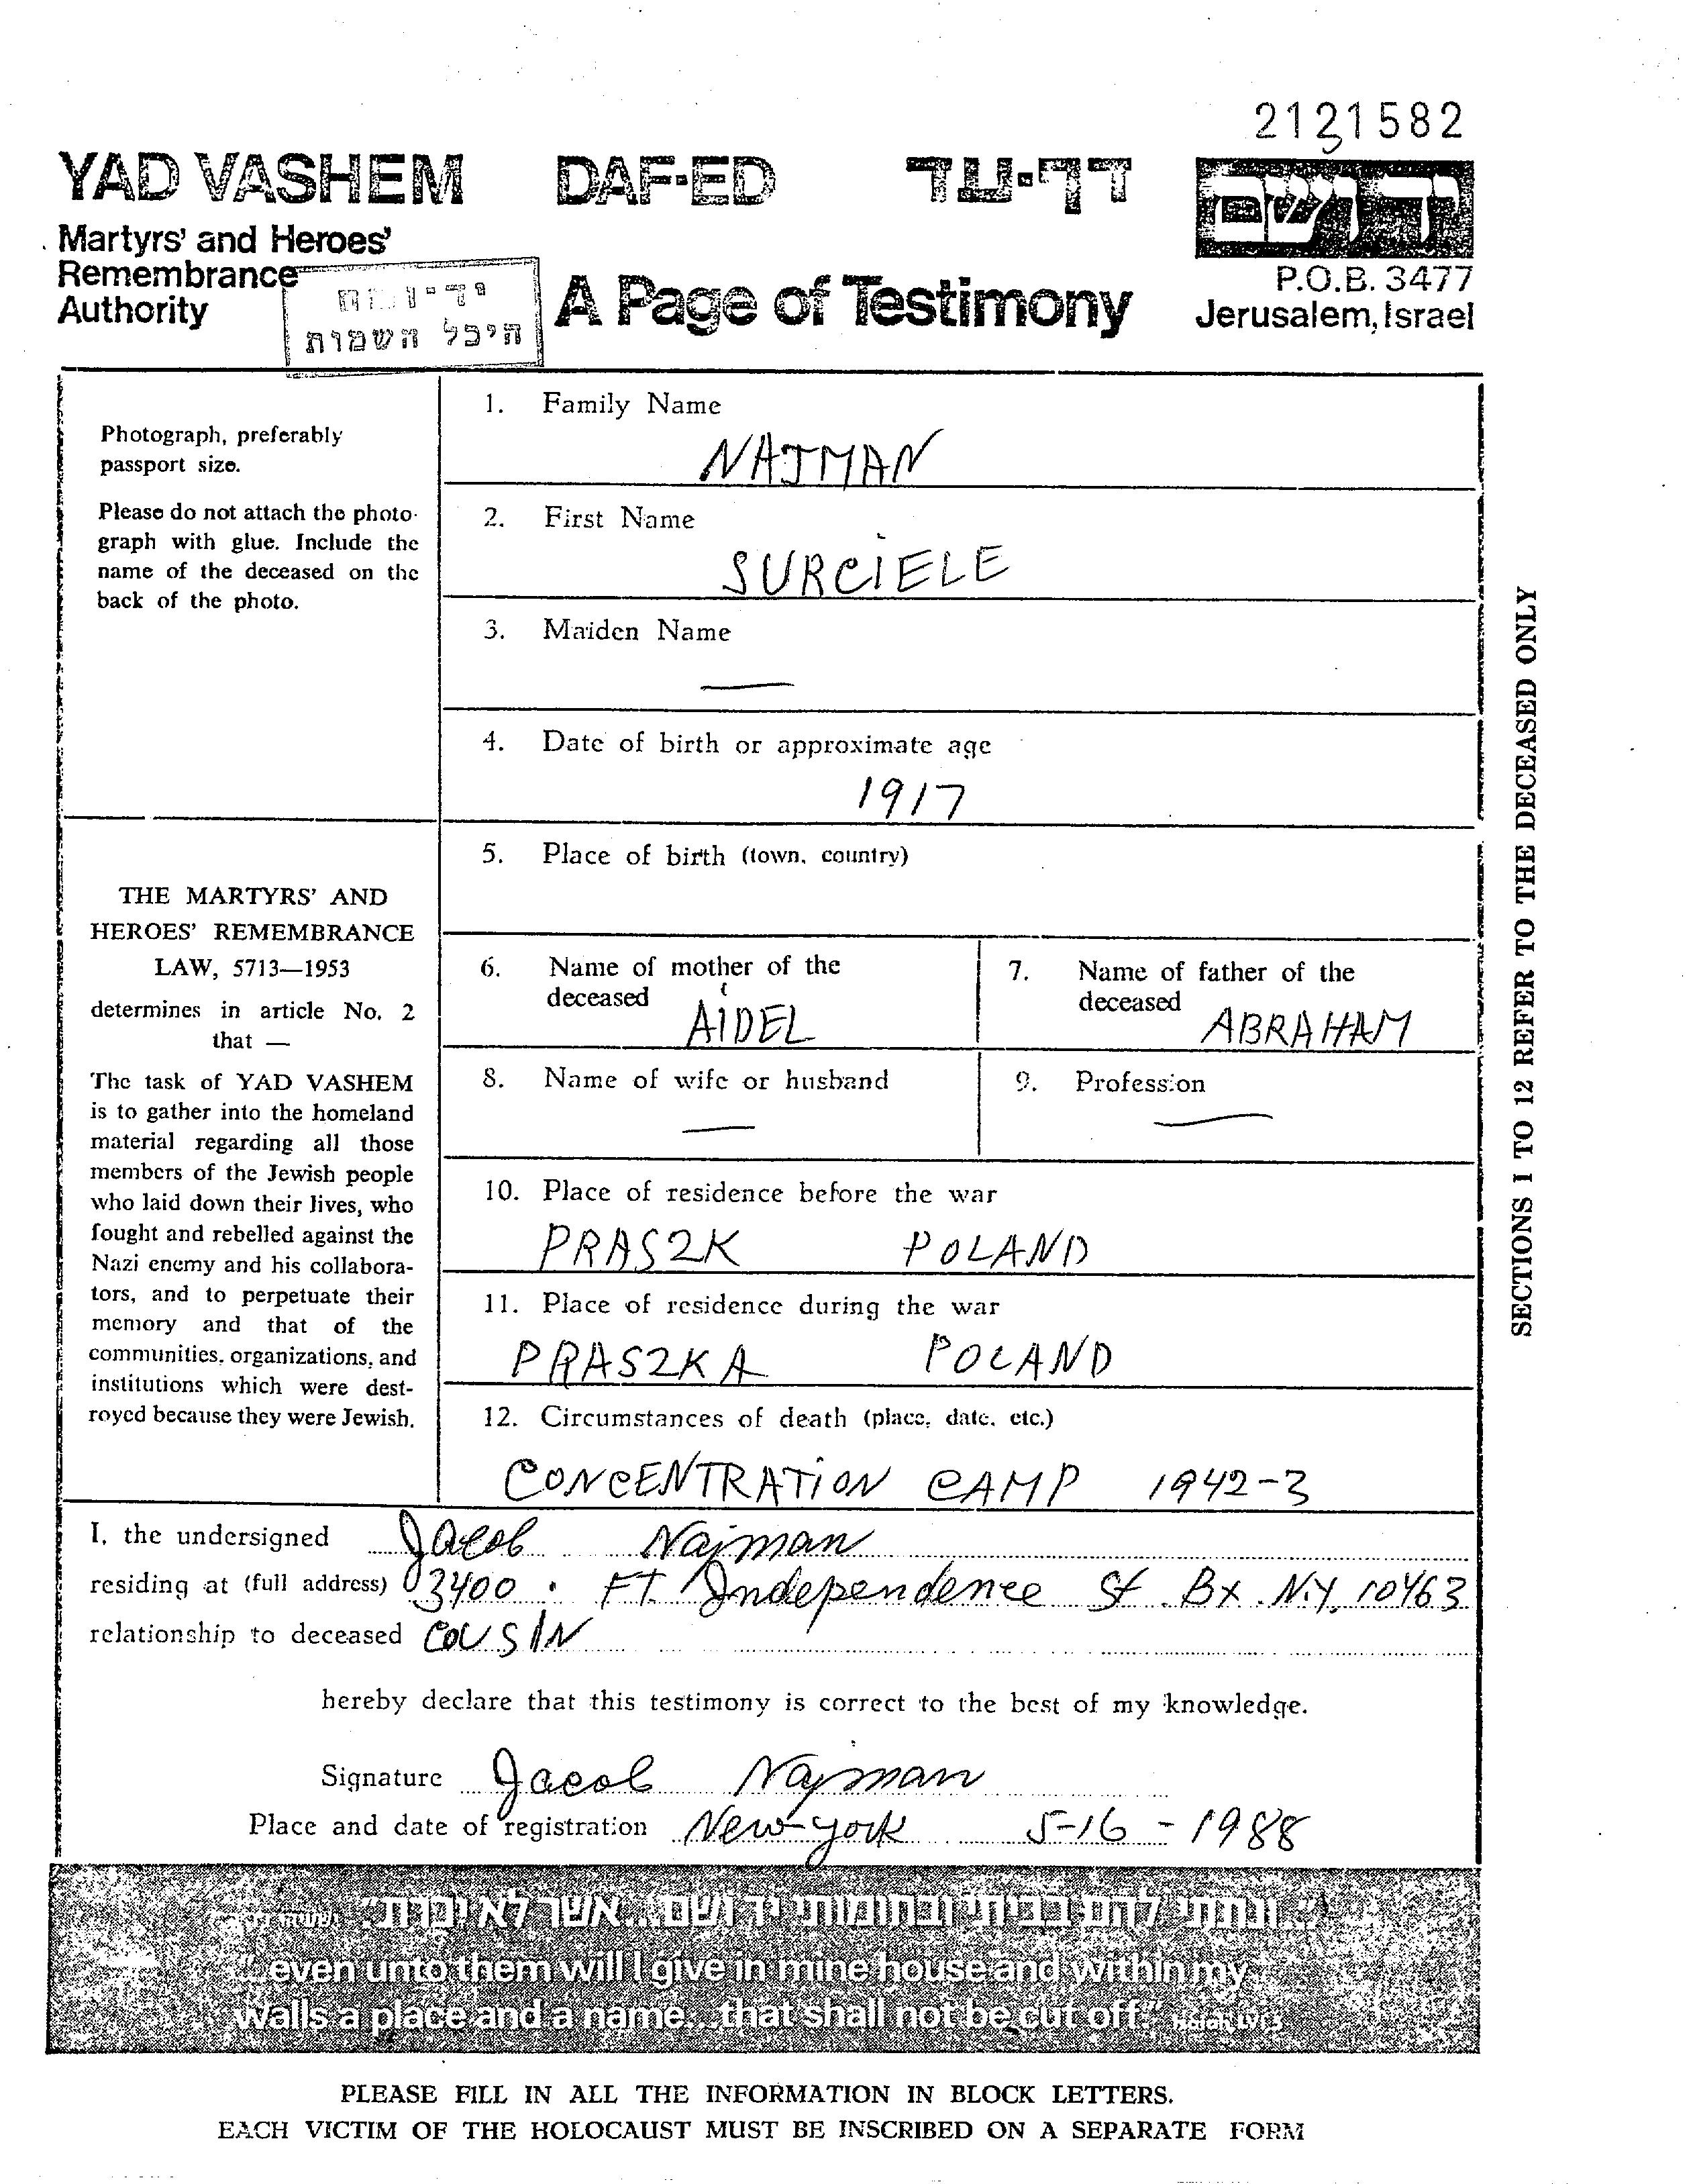 2121582
YAD VASHEM DAF-ED דף-עד ידושם
Martyrs' and Heroes'
Remembrance
Authority
היכל השמות
A Page of Testimony
P.O.B. 3477
Jerusalem, Israel
Photograph, preferably
passport size.
Please do not attach the photo-
graph with glue. Include the
name of the deceased on the
back of the photo.
1. Family Name
NAJMAN
2. First Name
SURCIELE
3. Maiden Name
—
4. Date of birth or approximate age
1917
5. Place of birth (town, country)
THE MARTYRS' AND
HEROES' REMEMBRANCE
LAW, 5713—1953
determines in article No. 2
that —
The task of YAD VASHEM
is to gather into the homeland
material regarding all those
members of the Jewish people
who laid down their lives, who
fought and rebelled against the
Nazi enemy and his collabora-
tors, and to perpetuate their
memory and that of the
communities, organizations, and
institutions which were dest-
royed because they were Jewish.
6. Name of mother of the
deceased AIDEL
7. Name of father of the
deceased ABRAHAM
8. Name of wife or husband
—
9. Profession
—
10. Place of residence before the war
PRASZK POLAND
11. Place of residence during the war
PRASZKA POLAND
12. Circumstances of death (place, date, etc.)
CONCENTRATION CAMP 1942-3
SECTIONS 1 TO 12 REFER TO THE DECEASED ONLY
I, the undersigned Jacob Najman
residing at (full address) 3400 . FT. Independence St. Bx. N.Y. 10463
relationship to deceased COUSIN
hereby declare that this testimony is correct to the best of my knowledge.
Signature Jacob Najman
Place and date of registration New-york 5-16-1988
"...ונתתי להם בביתי ובחומותי יד ושם...אשר לא יכרת"
"...even unto them will I give in mine house and within my
walls a place and a name...that shall not be cut off."
PLEASE FILL IN ALL THE INFORMATION IN BLOCK LETTERS.
EACH VICTIM OF THE HOLOCAUST MUST BE INSCRIBED ON A SEPARATE FORM